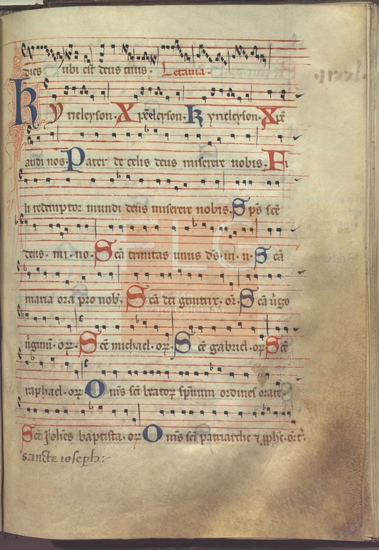 dies ubi est deus tuus. Letania.
Kyrieleyson. Xp̄eleyson. Kyrieleyson. Xp̄e
audi nos. Pater de celis deus miserere nobis. Fi
li redemptor mundi deus miserere nobis. Sp̄s sc̄e
deus. mi. no. Sc̄a trinitas unus ds̄. m. n. Sc̄a
maria ora pro nob̄. Sc̄a dei genitrix. or. Sc̄a uirgo
uirginū. or. Sc̄e michael. or. Sc̄e gabriel. or. Sc̄e
raphael. or. Om̄s sc̄i beatorꝝ spirituū ordines orate
Sc̄e Joh̄es baptista. or. Om̄s sc̄i patriarche ⁊ ꝓphe. orᵗ.
sancte ioseph: